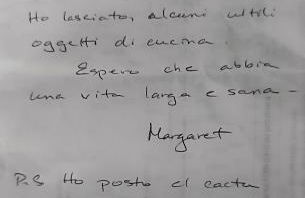 Ho lasciato, alcuni uttili
oggetti di cucina.
Espero che abbia
una vita larga e sana -
Margaret
P.S Ho posto el cactu